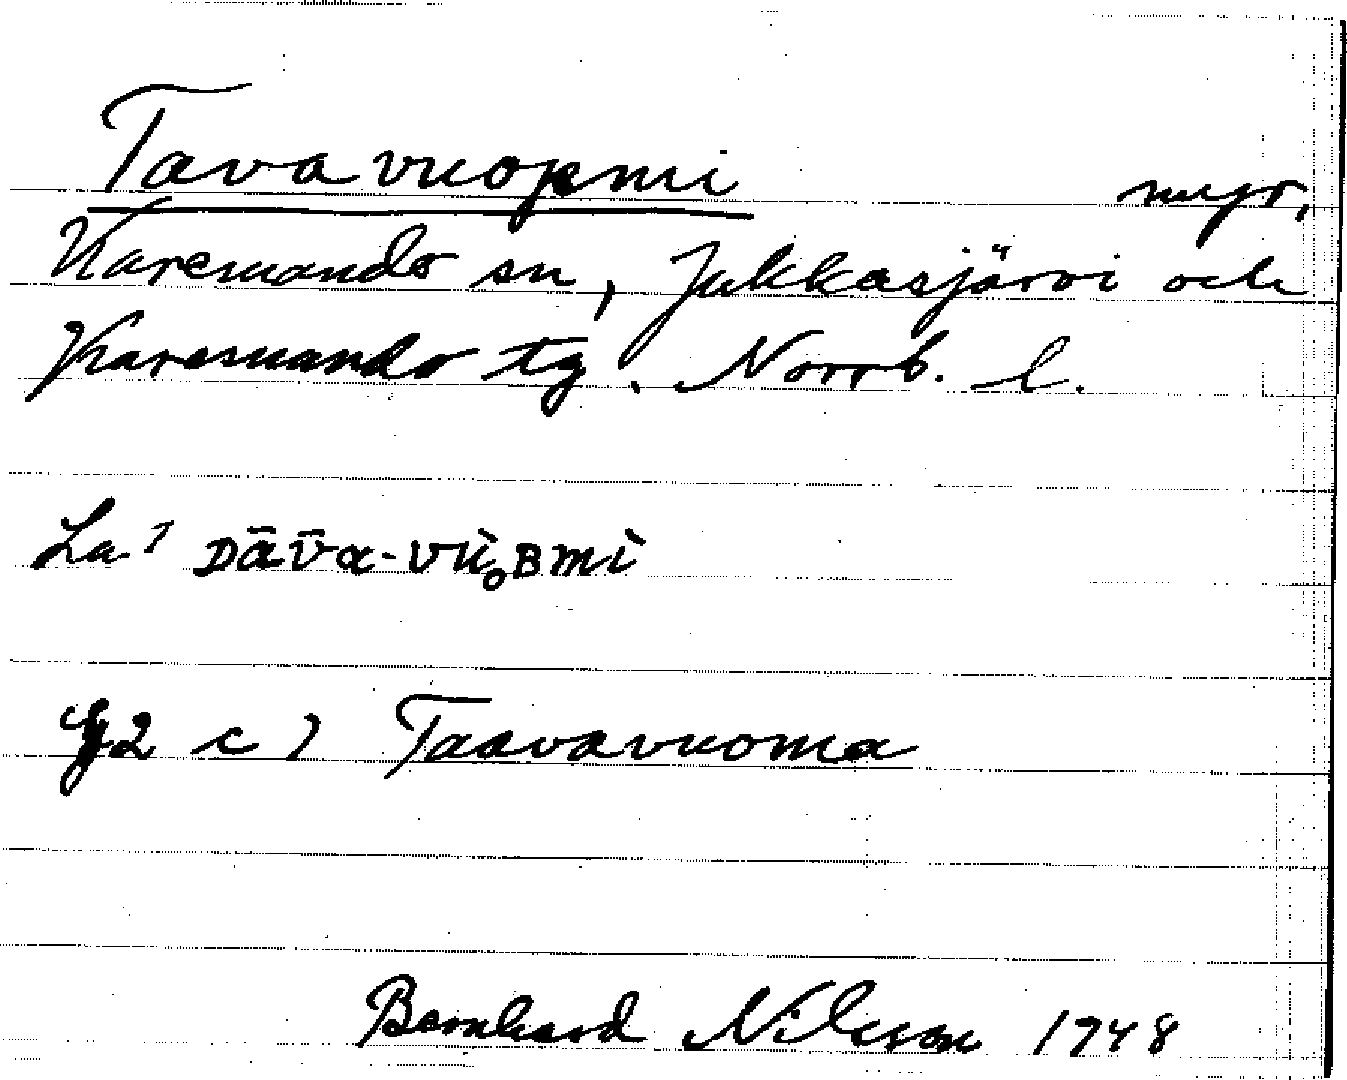 Tavavuopmi myr,
Karesuando sn, Jukkasjärvi och
Karesuando tg. Norrb. l.
La. ? ᴅāv̄ɑ-vù̥ʙmì
2 c ) Taavavuoma
Bernhard Nilsson 1948